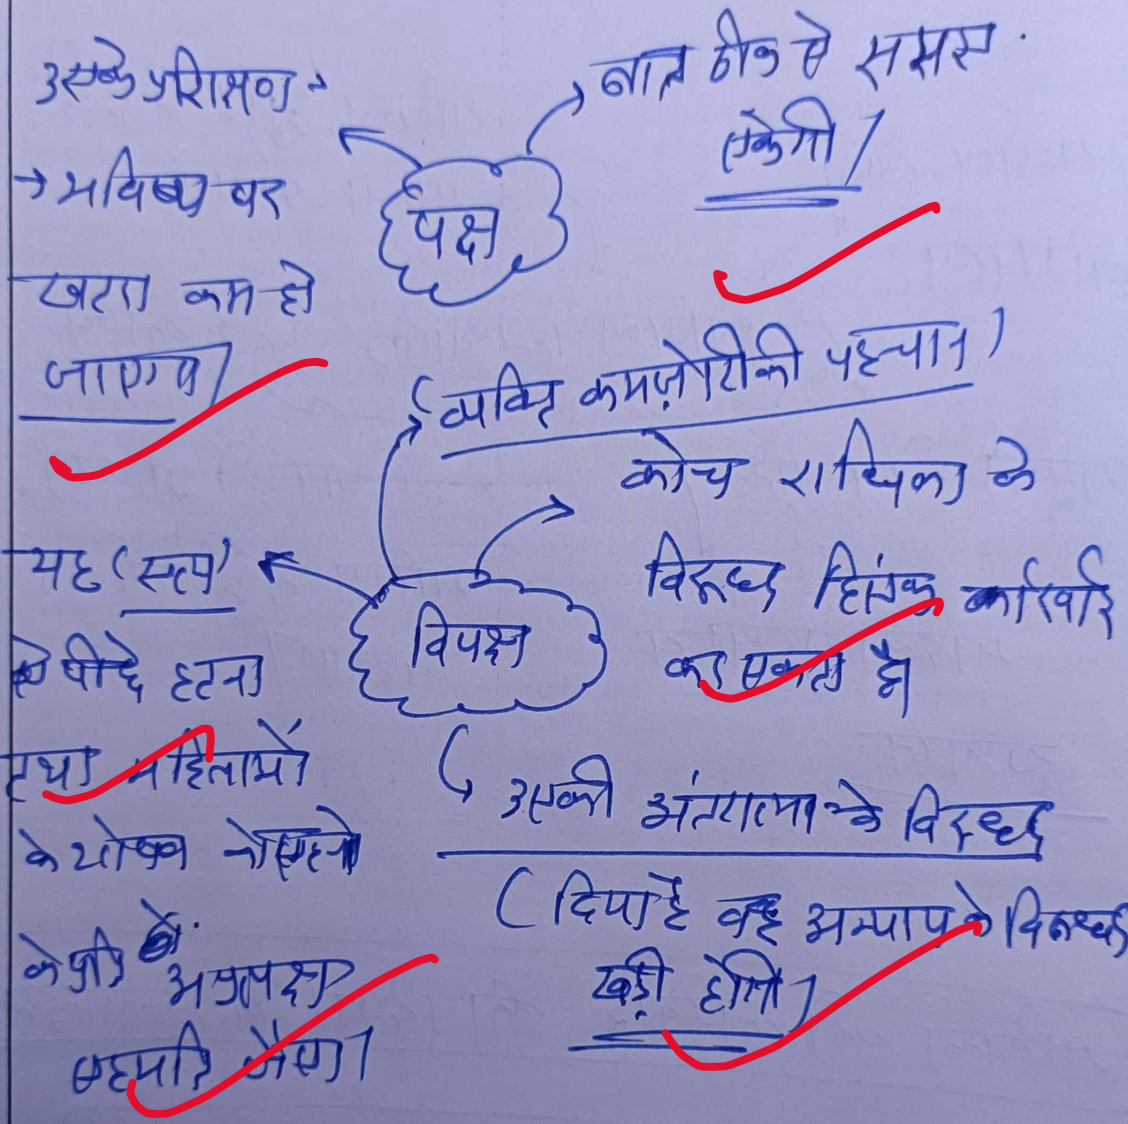 उसके प्रशिक्षण व
→ भविष्य पर
खतरा कम हो
जाएगा।
बात ठीक से समझ
सकेगी।
पक्ष
(व्यक्ति कमज़ोरी की पहचान)
कोच राधिका के
विरूध्द हिंसक कार्रवाई
कर सकता है।
विपक्ष
यह (सत्य)
से पीछे हटना
तथा महिलाओं
के शोषण को सहने
के प्रति
अप्रत्यक्ष
सहमति जैसा।
उसकी अंतरात्मा के विरूध्द
( दिया है वह अन्याय के विरूध्द
खड़ी होगी।